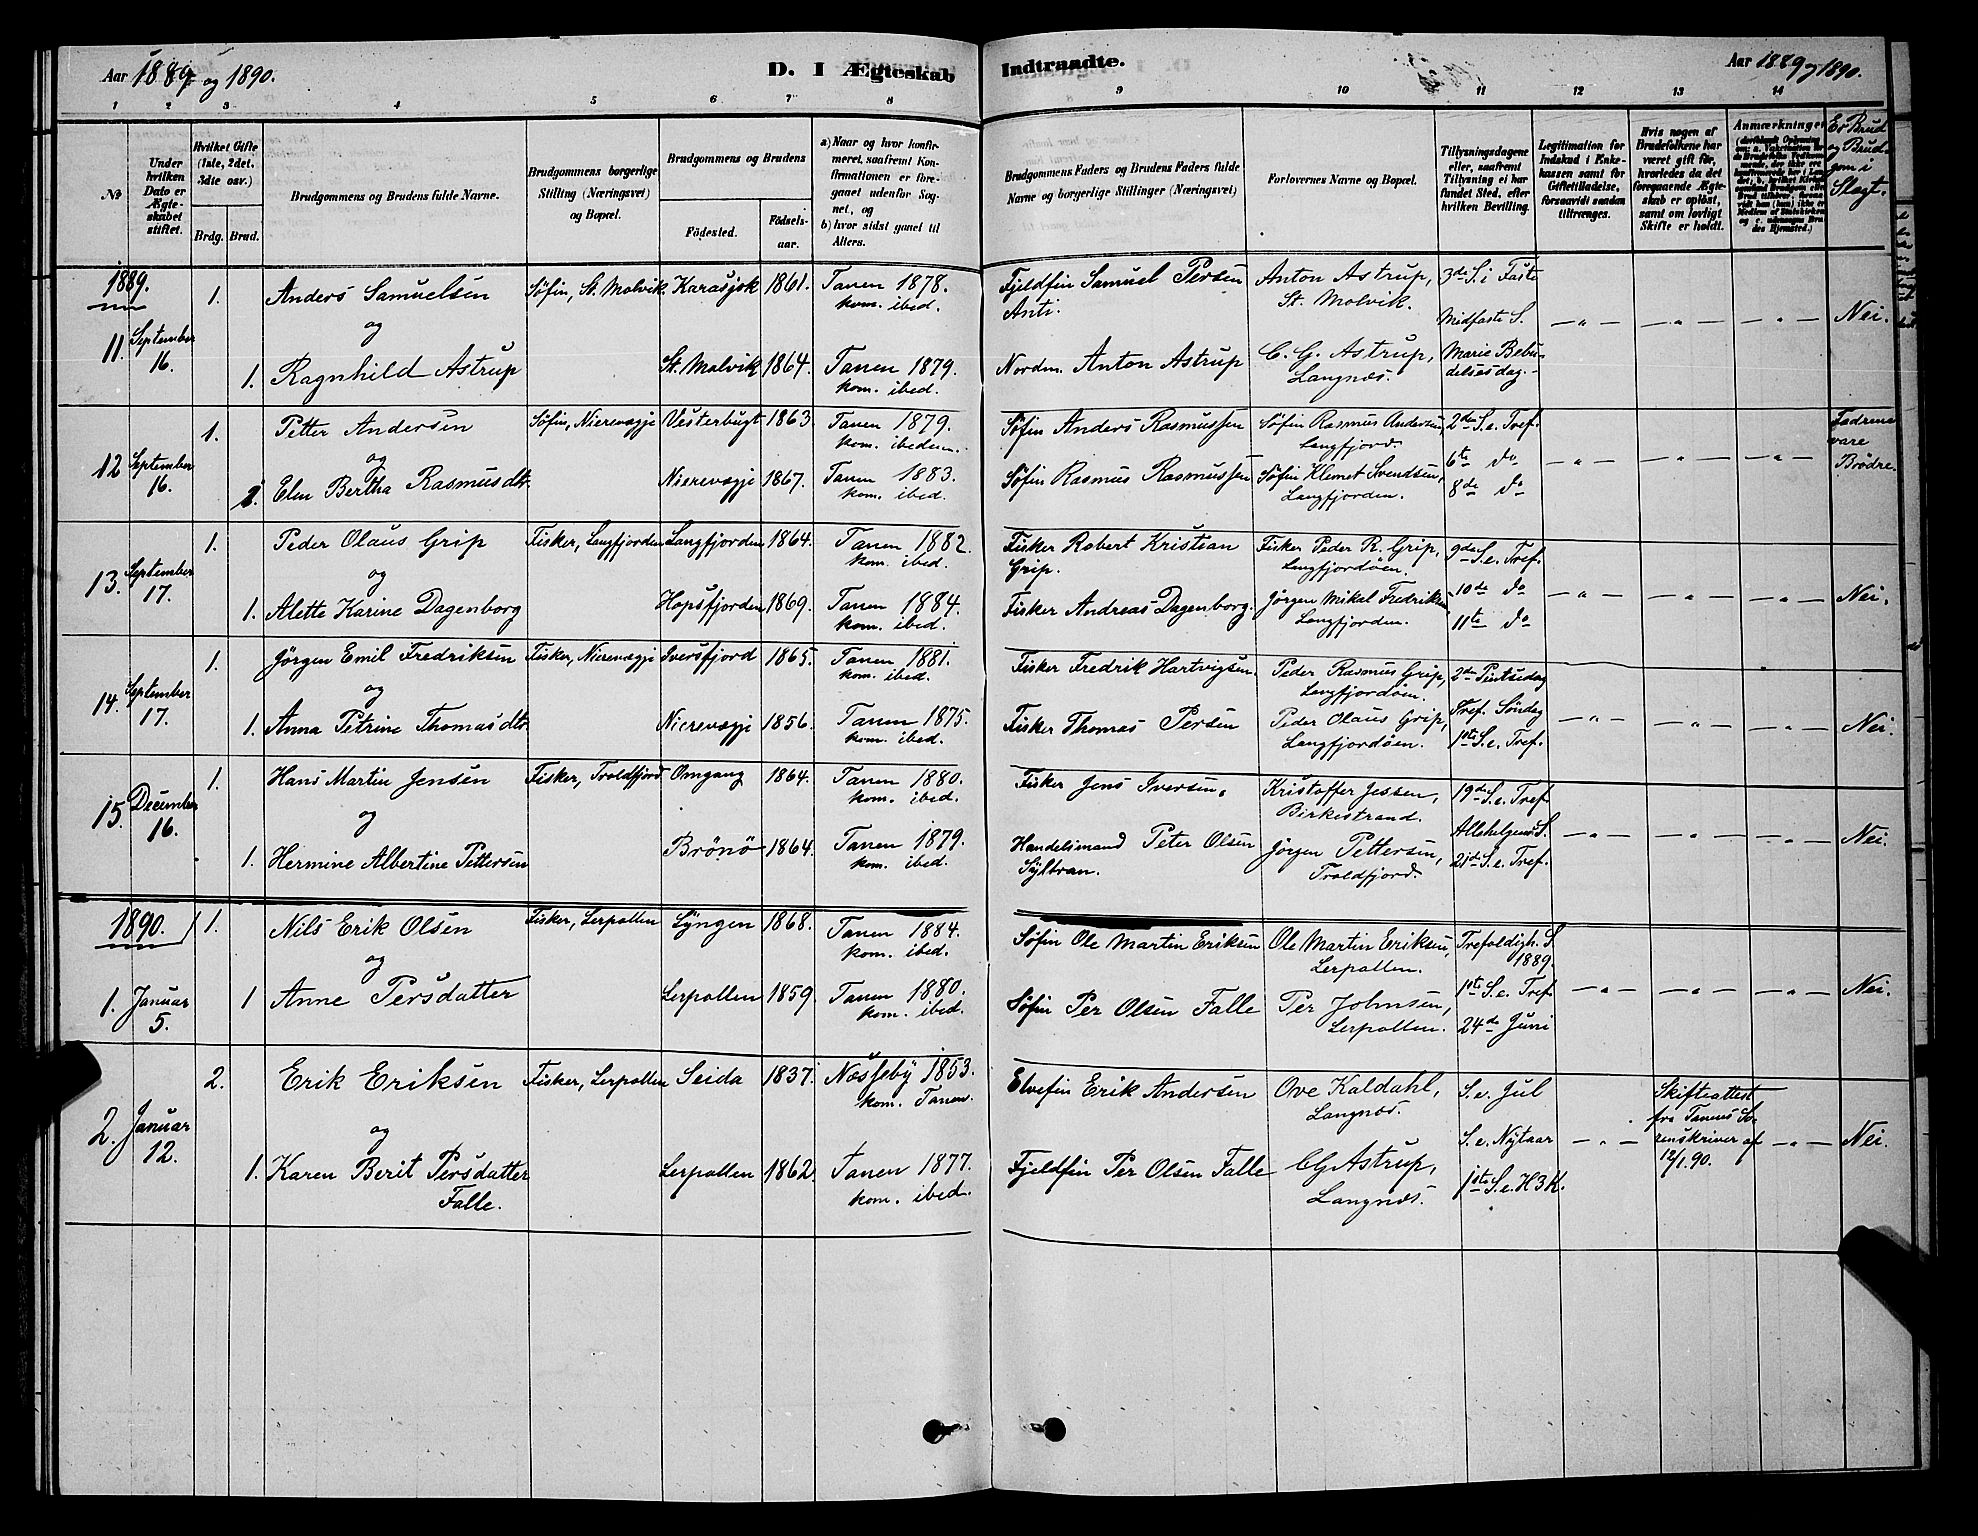 Aar 1889 og 1890.
D. I Ægteskab
Indtraadte.
Aar 1889 og 1890.
1 2 3 4 5 6 7 8
9 10 11 12 13 14
№
Under hvilken Dato er Ægteskabet stiftet.
Hvilket Gifte (1ste, 2det, 3die osv.)
Brdg. Brud.
Brudgommens og Brudens fulde Navne.
Brudgommens borgerlige Stilling (Næringsvei) og Bopæl.
Brudgommens og Brudens
Fødested.
Fødsels-aar.
a) Naar og hvor konfirmeret, saafremt Konfirmationen er foregaaet udenfor Sognet, og
b) hvor sidst gaaet til Alters.
Brudgommens Faders og Brudens Faders fulde Navne og borgerlige Stillinger (Næringsvei)
Forlovernes Navne og Bopæl.
Tillysningsdagene eller, saafremt Tillysning ei har fundet Sted, efter hvilken Bevilling.
Legitimation for Indskud i Enkekassen samt for Giftetilladelse, forsaavidt saadan tiltrænges.
Hvis nogen af Brudefolkene har været gift før, hvorledes da det foregaaende Ægteskab er opløst, samt om lovligt Skifte er holdt.
Anmærkninger
Er Brud og Brudgom i Slægt.
1889.
11. September 16. 1. Anders Samuelsen Søfin, St. Molvik. Karasjok 1861. Tanen 1878. kom. ibed. Fjeldfin Samuel Persen Anti. Anton Astrup, St. Molvik. 3de S. i Faste
og
Midfaste S. — " — — " — — " — Nei.
1. Ragnhild Astrup St. Molvik 1864. Tanen 1879. kom. ibed. Nordm. Anton Astrup C. G. Astrup, Langnæs. Marie Bebudelsesdag.
12 September 16. 1. Petter Andersen Søfin, Nierevægje Vesterbugt 1863. Tanen 1879. kom. ibedem. Søfin Anders Rasmussen Søfin Rasmus Andersen, Langfjord. 2den S. e. Tref.
og
6te do — " — — " — — " — Fædrene vare Brødre.
1. Elen Bertha Rasmusdtr. Nierevægje 1867. Tanen 1883. kom. ibed. Søfin Rasmus Rasmussen Søfin Klemet Svendsen, Langfjorden. 8de do
13. September 17. 1. Peder Olaus Grip Fisker, Langfjorden Langfjorden 1864. Tanen 1882. kom. ibed. Fisker Robert Kristian Grip. Fisker Peder R. Grip, Langfjordøen. 9de S. e. Tref.
og
10de do — " — — " — — " — Nei.
1. Alette Karine Dagenborg Hopsfjorden 1869. Tanen 1884. kom. ibed. Fisker Andreas Dagenborg. Jørgen Mikal Fredriksen Langfjorden. 11te do
14. September 17. 1. Jørgen Emil Fredriksen Fisker, Nierevægje Iversfjord 1865. Tanen 1881. kom. ibed. Fisker Fredrik Hartvigsen. Peder Rasmus Grip, Langfjordøen. 2den Pintsedag
og
Tref. Søndag — " — — " — — " — Nei.
1. Anna Petrine Thomasdtr. Nierevægje 1856. Tanen 1875. kom. ibed. Fisker Thomas Persen Peder Olaus Grip, Langfjordøen. 1ste S. e. Tref.
15. December 16. 1. Hans Martin Jensen Fisker, Troldfjord Omgang 1864. Tanen 1880. kom. ibed. Fisker Jens Iversen. Kristoffer Jessen, Birkestrand. 19de S. e. Tref
og
Allehelgens S. — " — — " — — " — Nei.
1. Hermine Albertine Pettersen Brönö 1864. Tanen 1879. kom. ibed. Handelsmand Peter Olsen Sÿltvan. Jørgen Pettersen, Troldfjord. 21de S. e. Tref.
1890.
1. Januar 5. 1. Nils Erik Olsen Fisker, Lerpollen Lÿngen 1868. Tanen 1884. kom. ibed. Søfin Ole Martin Eriksen Ole Martin Eriksen, Lerpollen. Trefoldigh. S. 1889.
og
1ste S. e. Tref. — " — — " — — " — Nei.
1 Anne Persdatter Lerpollen 1859. Tanen 1880. kom. ibed. Søfin Per Olsen Falle Per Johnsen, Lerpollen. 24de Juni
2. Januar 12. 2. Erik Eriksen Fisker, Lerpollen Seida 1837. Næsseby 1853. kom. Tanen. Elvefin Erik Andersen Ove Kaldahl, Langnæs. S. e. Jul
og
S. e. Nytaar — " — Skifteattest fra Tanens Sorenskriver af 12/1.90. — " — Nei.
1. Karen Berit Persdatter Falle. Lerpollen 1862. Tanen 1877. kom. ibed. Fjeldfin Per Olsen Falle CG Astrup, Langnæs. 1ste S. e. H3K.